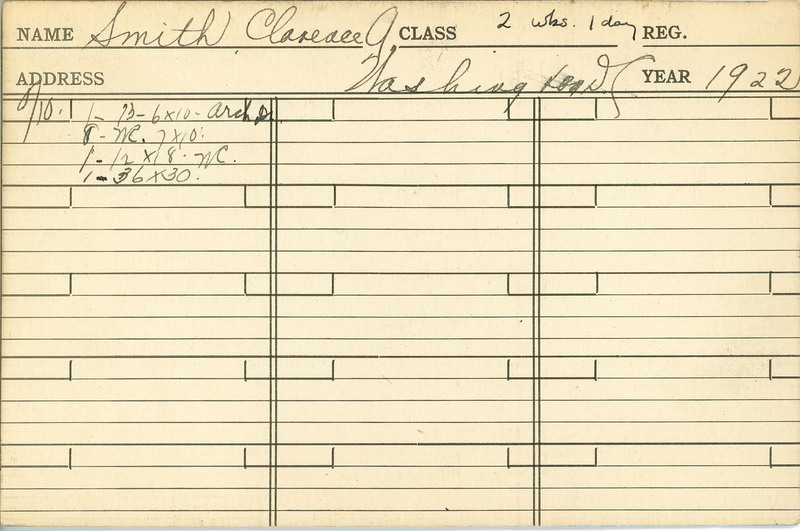 NAME Smith, Clarence J CLASS 2 wks. 1 day REG.
ADDRESS Washington YEAR 1922
8/10. 1 - 13 - 6x10 - Arch
8 - WC. 7x10.
1 - 12 x 18. WC.
1 - 36x30.